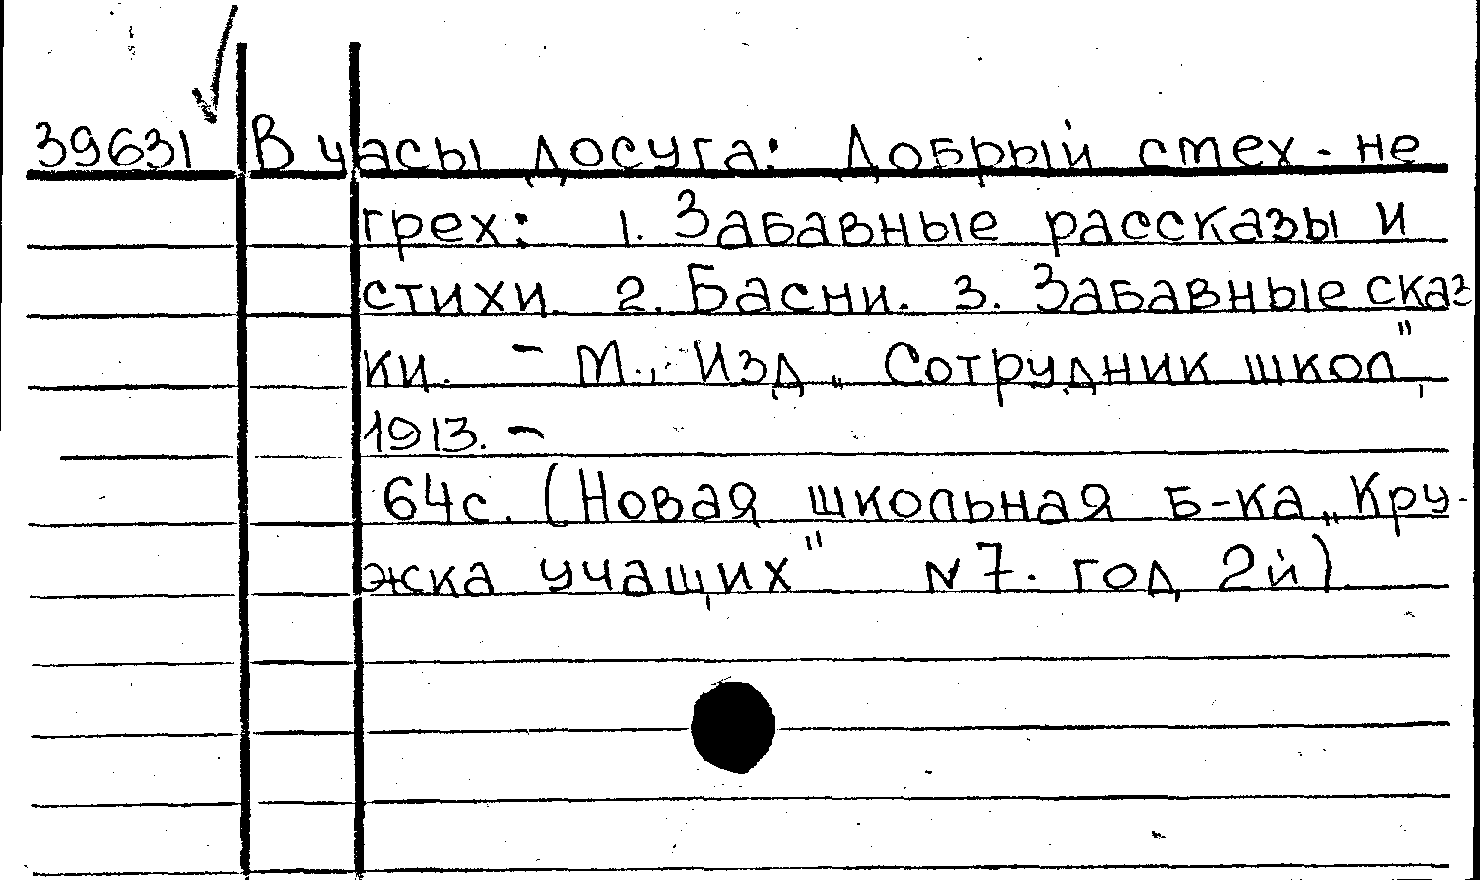 39631 В часы досуга: Добрый смех - не
грех: 1. Забавные рассказы и
стихи. 2. Басни. 3. Забавные сказ
ки. - М., Изд. „Сотрудник школ",
1913. -
64с. (Новая школьная б-ка „Кру-
жка учащих" N7. год 2й)